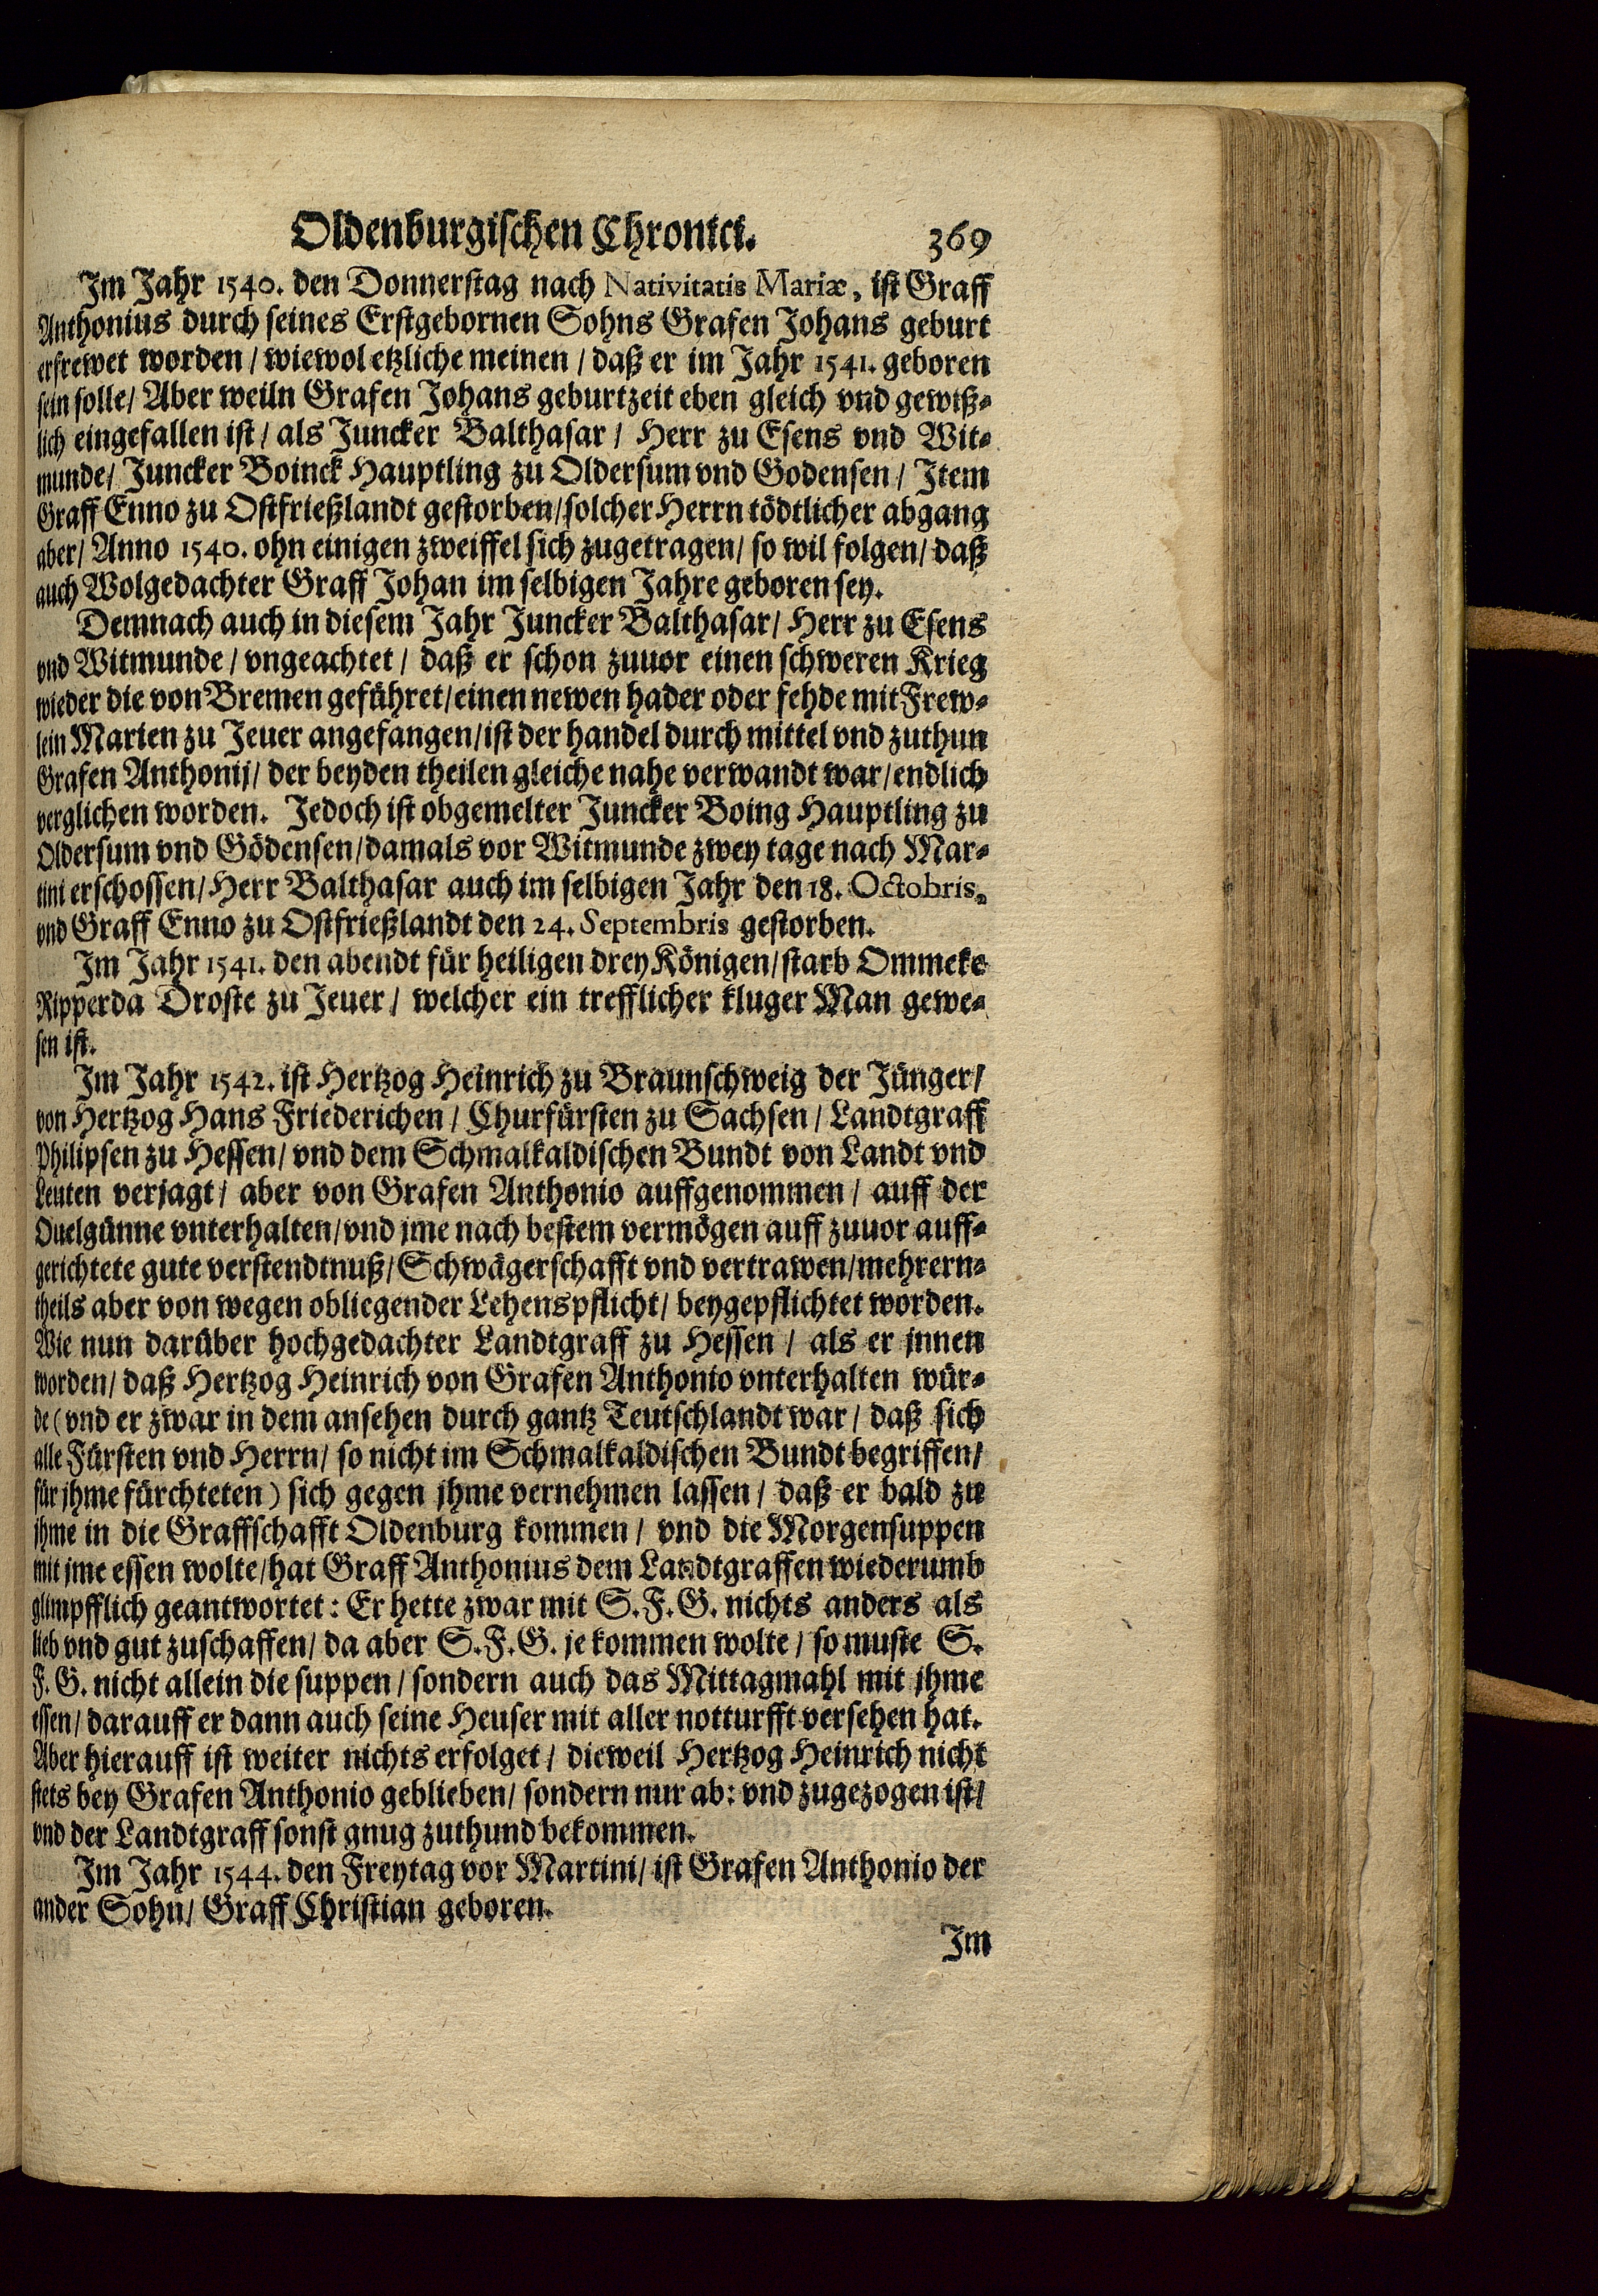 Oldenburgischen Chronici. 369
Im Jahr 1540. den Donnerstag nach Nativitatis Mariæ, ist Graff
Anthonius durch seines Erstgebornen Sohns Grafen Johans geburt
erfrewet worden / wiewol etzliche meinen / daß er im Jahr 1541. geboren
sein solle / Aber weiln Grafen Johans geburtzeit eben gleich vnd gewiß-
lich eingefallen ist / als Juncker Balthasar / Herr zu Esens vnd Wit-
munde / Juncker Boinck Hauptling zu Oldersum vnd Godensen / Item
Graff Enno zu Ostfrießlandt gestorben / solcher Herrn tödtlicher abgang
aber / Anno 1540. ohn einigen zweiffel sich zugetragen / so wil folgen / daß
auch Wolgedachter Graff Johan im selbigen Jahre geboren sey.
Demnach auch in diesem Jahr Juncker Balthasar / Herr zu Esens
vnd Witmunde / vngeachtet / daß er schon zuuor einen schweren Krieg
wieder die von Bremen geführet / einen newen hader oder fehde mit Frew-
lein Marien zu Jeuer angefangen / ist der handel durch mittel vnd zuthun
Grafen Anthonij / der beyden theilen gleiche nahe verwandt war / endlich
verglichen worden. Jedoch ist obgemelter Juncker Boing Hauptling zu
Oldersum vnd Gödensen / damals vor Witmunde zwey tage nach Mar-
tini erschossen / Herr Balthasar auch im selbigen Jahr den 18. Octobris,
vnd Graff Enno zu Ostfrießlandt den 24. Septembris gestorben.
Im Jahr 1541. den abendt für heiligen drey Königen / starb Ommeke
Ripperda Droste zu Jeuer / welcher ein trefflicher kluger Man gewe-
sen ist.
Im Jahr 1542. ist Hertzog Heinrich zu Braunschweig der Jünger /
von Hertzog Hans Friederichen / Churfürsten zu Sachsen / Landtgraff
Philipsen zu Hessen / vnd dem Schmalkaldischen Bundt von Landt vnd
Leuten verjagt / aber von Grafen Anthonio auffgenommen / auff der
Ouelgünne vnterhalten / vnd jme nach bestem vermögen auff zuuor auff-
gerichtete gute verstendtnuß / Schwägerschafft vnd vertrawen / mehrern-
theils aber von wegen obliegender Lehenspflicht / beygepflichtet worden.
Wie nun darüber hochgedachter Landtgraff zu Hessen / als er jnnen
worden / daß Hertzog Heinrich von Grafen Anthonio vnterhalten wür-
de (vnd er zwar in dem ansehen durch gantz Teutschlandt war / daß sich
alle Fürsten vnd Herrn / so nicht im Schmalkaldischen Bundt begriffen /
für jhme fürchteten) sich gegen jhme vernehmen lassen / daß er bald zu
jhme in die Graffschafft Oldenburg kommen / vnd die Morgensuppen
mit jme essen wolte / hat Graff Anthonius dem Landtgraffen wiederumb
glimpfflich geantwortet: Er hette zwar mit S. F. G. nichts anders als
lieb vnd gut zuschaffen / da aber S. F. G. je kommen wolte / so muste S.
F. G. nicht allein die suppen / sondern auch das Mittagmahl mit jhme
essen / darauff er dann auch seine Heuser mit aller notturfft versehen hat.
Aber hierauff ist weiter nichts erfolget / dieweil Hertzog Heinrich nicht
stets bey Grafen Anthonio geblieben / sondern nur ab: vnd zugezogen ist /
vnd der Landtgraff sonst gnug zuthund bekommen.
Im Jahr 1544. den Freytag vor Martini / ist Grafen Anthonio der
ander Sohn / Graff Christian geboren.
Im